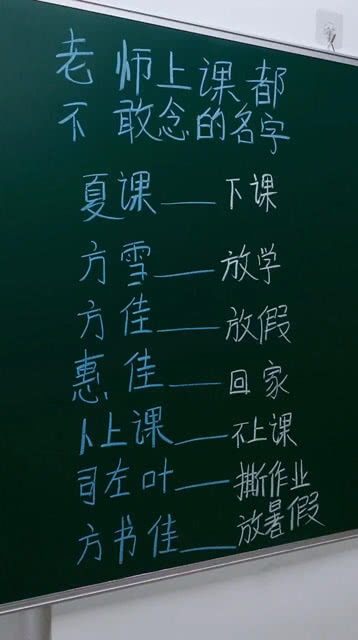 老师上课都
不敢念的名字
夏课——下课
方雪——放学
方佳——放假
惠佳——回家
卜上课——不上课
司左叶——撕作业
方书佳——放暑假